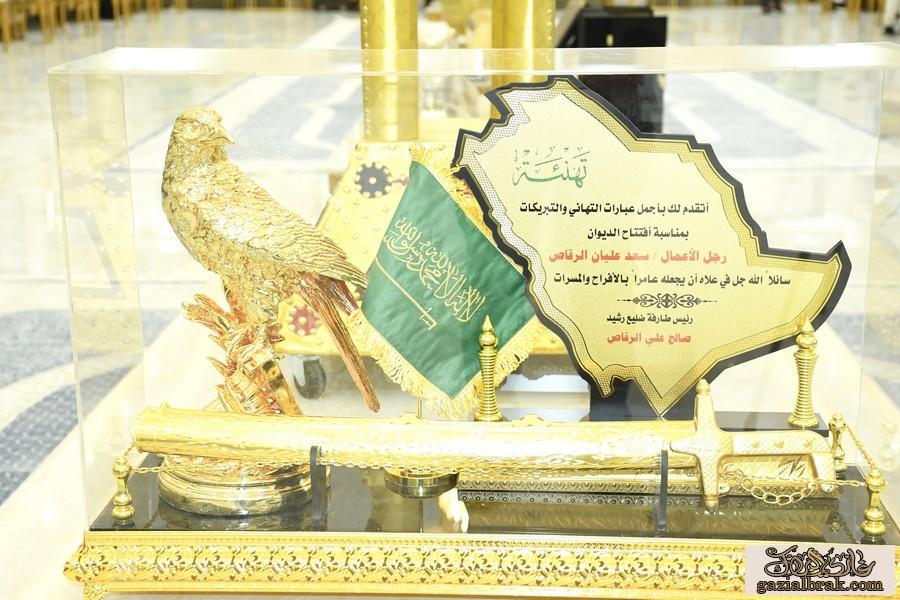 تهنئة
أتقدم لك بأجمل عبارات التهاني والتبريكات
بمناسبة أفتتاح الديوان
رجل الأعمال / سعد عليان الرقاص
سائلاً الله جل في علاه أن يجعله عامراً بالأفراح والمسرات
رئيس طارفة ضليع رشيد
صالح علي الرقاص
لا إله إلا الله محمد رسول الله
gazialbrak.com